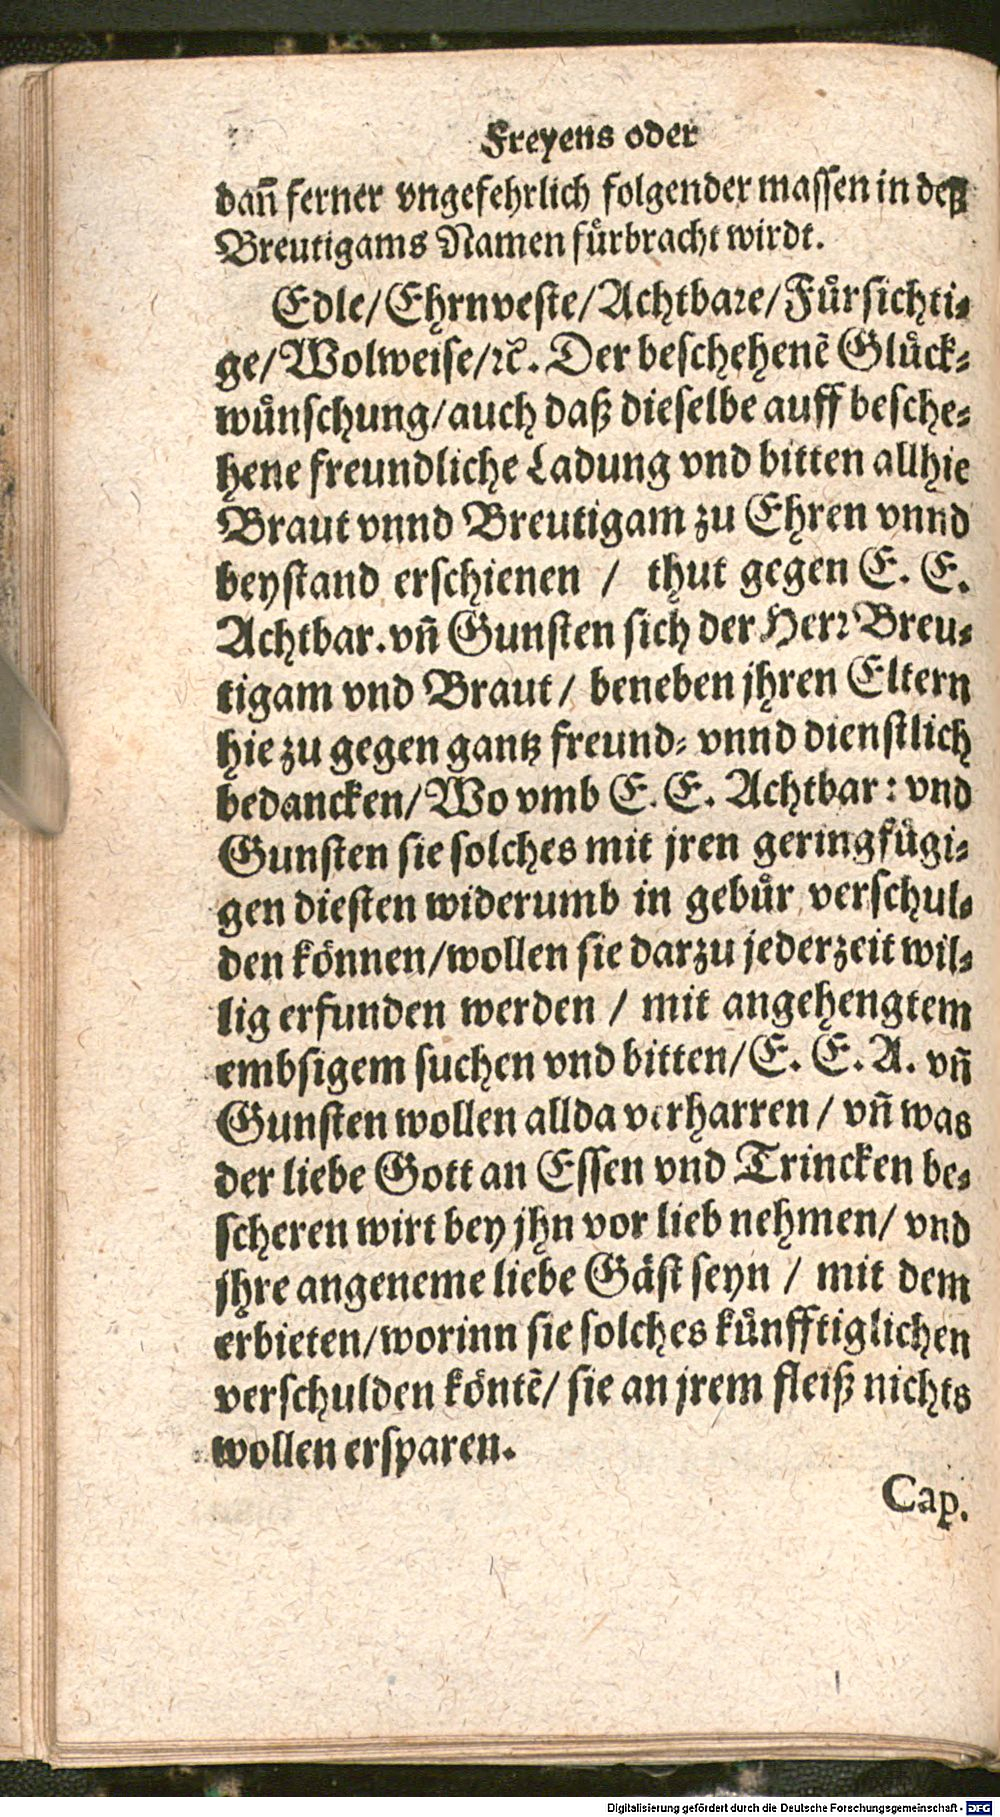 Freyens oder
dañ ferner vngefehrlich folgender massen in deß
Breutigams Namen fuͤrbracht wirdt.
Edle/Ehrnveste/Achtbare/Fuͤrsichti-
ge/Wolweise/ꝛc̃. Der beschehenẽ Gluͤck-
wuͤnschung/auch daß dieselbe auff besche-
hene freundliche Ladung vnd bitten allhie
Braut vnnd Breutigam zu Ehren vnnd
beystand erschienen / thut gegen E. E.
Achtbar. vñ Gunsten sich der Herr Breu-
tigam vnd Braut/ beneben jhren Eltern
hie zu gegen gantz freund- vnnd dienstlich
bedancken/Wo vmb E. E. Achtbar: vnd
Gunsten sie solches mit jren geringfuͤgi-
gen diesten widerumb in gebuͤr verschul-
den koͤnnen/wollen sie darzu jederzeit wil-
lig erfunden werden / mit angehengtem
embsigem suchen vnd bitten/E. E. A. vñ
Gunsten wollen allda verharren/ vñ was
der liebe Gott an Essen vnd Trincken be-
scheren wirt bey jhn vor lieb nehmen/ vnd
jhre angeneme liebe Gaͤst seyn / mit dem
erbieten/worinn sie solches kuͤnfftiglichen
verschulden koͤntẽ/ sie an jrem fleiß nichts
wollen ersparen.
Cap.
Digitalisierung gefördert durch die Deutsche Forschungsgemeinschaft - DFG